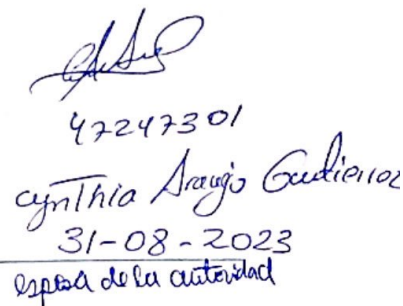 47247301
Cynthia Araujo Gutierrez
31-08-2023
esposa de la autoridad